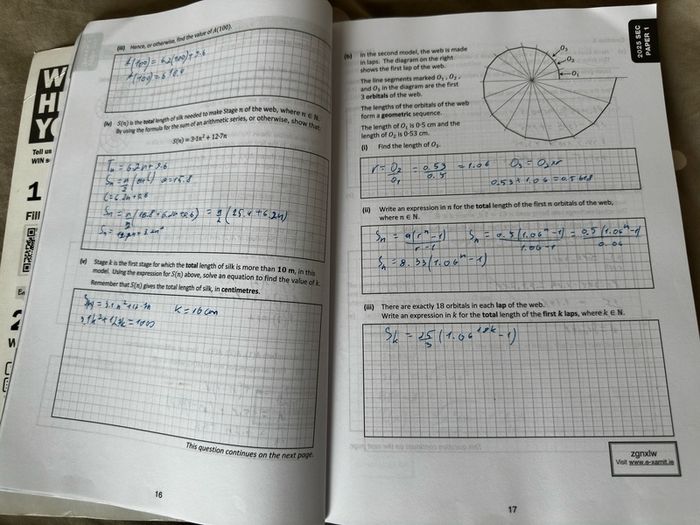 W
HY
Tell us
WIN
1
Fill
2
(iii) Hence, or otherwise, find the value of A(100).
A(100) = 6.2(100)+9.6
A(100) = 629.6
(iv) S(n) is the total length of silk needed to make Stage n of the web, where n ∈ N.
By using the formula for the sum of an arithmetic series, or otherwise, show that:
S(n) = 3·1n² + 12·7n
(v) Stage k is the first stage for which the total length of silk is more than 10 m, in this
model. Using the expression for S(n) above, solve an equation to find the value of k.
Remember that S(n) gives the total length of silk, in centimetres.
k = 16 cm
This question continues on the next page.
16
2025 SEC
PAPER 1
(b) In the second model, the web is made
in laps. The diagram on the right
shows the first lap of the web.
The line segments marked O₁, O₂,
and O₃ in the diagram are the first
3 orbitals of the web.
The lengths of the orbitals of the web
form a geometric sequence.
The length of O₁ is 0·5 cm and the
length of O₂ is 0·53 cm.
O₃
O₂
O₁
(i) Find the length of O₃.
r = O₂/O₁ = 0.53/0.5 = 1.06 O₃ = O₂xr
0.53 x 1.06 = 0.5618
(ii) Write an expression in n for the total length of the first n orbitals of the web,
where n ∈ N.
Sₙ = a(rⁿ-1)/r-1 Sₙ = 0.5(1.06ⁿ-1)/1.06-1 = 0.5(1.06ⁿ-1)/0.06
Sₙ = 8.33(1.06ⁿ-1)
(iii) There are exactly 18 orbitals in each lap of the web.
Write an expression in k for the total length of the first k laps, where k ∈ N.
Sk = 25/3 (1.06^18k - 1)
zgnxlw
Visit www.e-xamit.ie
17